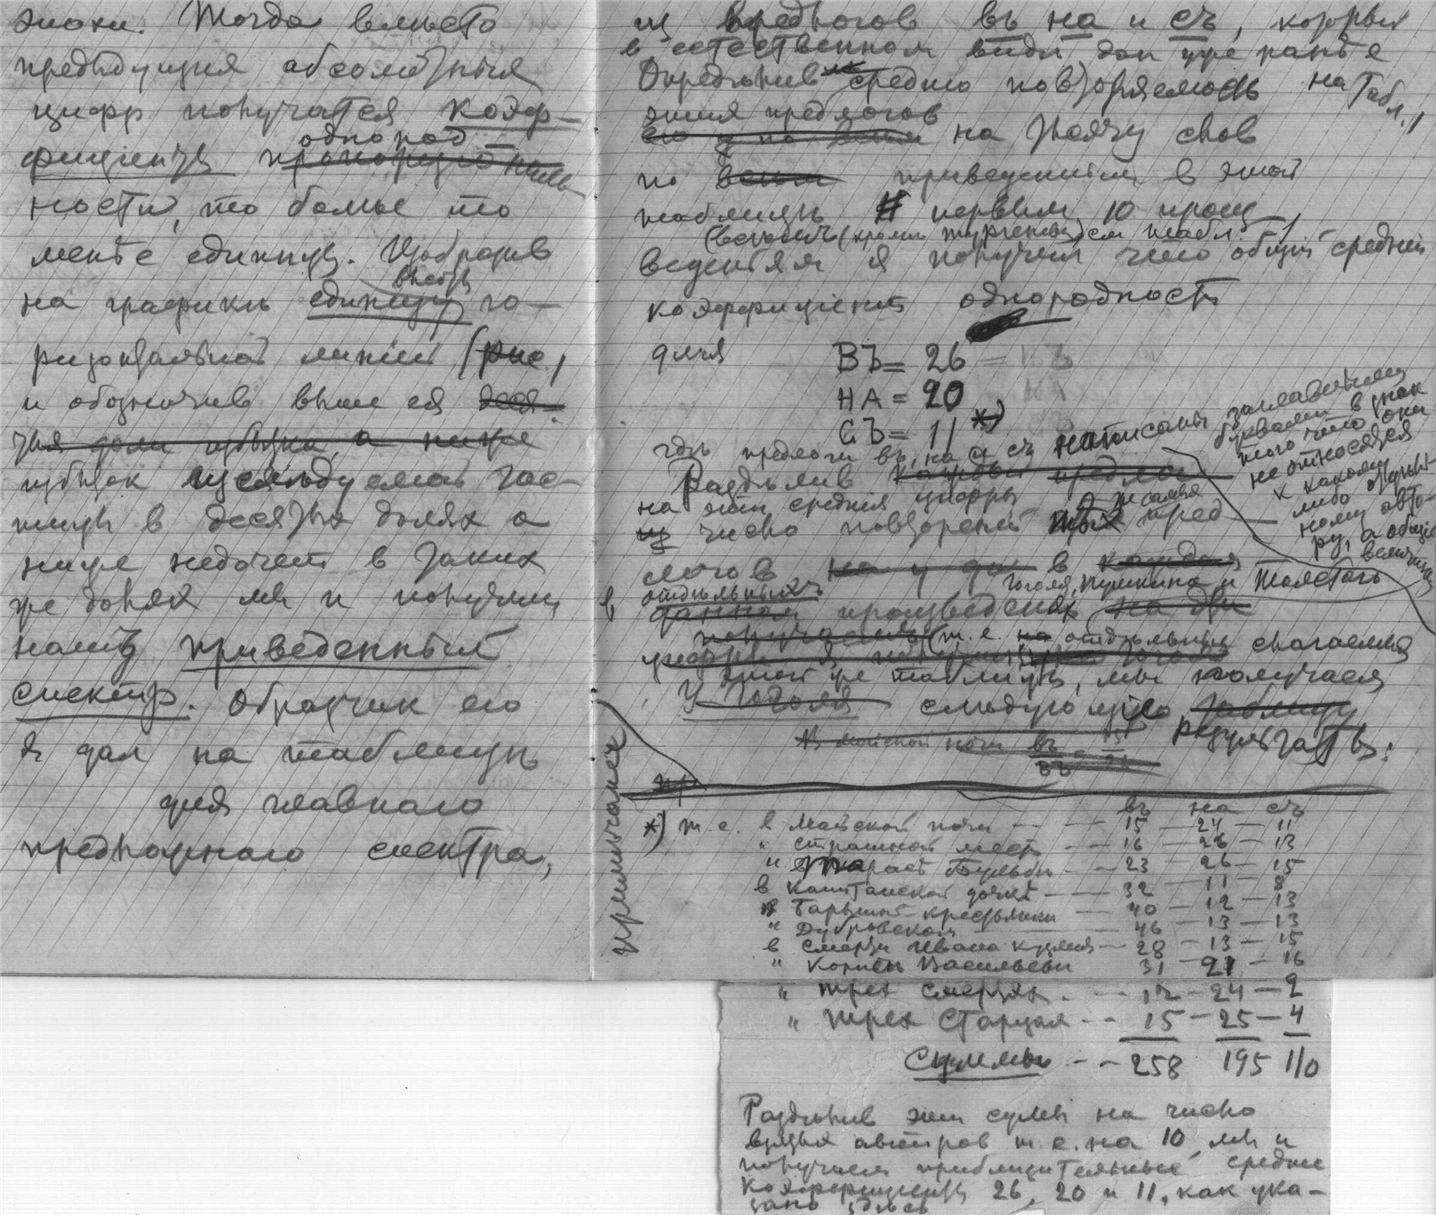 эпохи. Тогда вместо
предыдущия абсолютныя
цифр получатся коэф-
фиціенты
однород
пропорціональ
ности, то более то
менѣе единицы. Изобразив
на графикѣ единицу го-
ризонтальной линіей (рис.)
и обозначив выше ея деся-
тыя доли избытка, а ниже
избыток изслѣдуемой час-
тицы в десятых долях а
ниже недочет в таких
же долях мы и получим
намѣ приведенный
спектр. Образчик его
я дал на таблицѣ
для главнаго
предложнаго спектра,
предлогов въ на и съ, которых
в естественном видѣ дан уже ранѣе
на Табл. 1
Опредѣлив среднюю повторяемость
этих предлогов
на тысячу слов
по всем приведенным в этой
таблицѣ первым 10 произ-
(вычтя) (кромѣ Тургенева) см табл. 1
веденіям я получил что общій средній
коэффиціент однородности
для ВЪ = 26
НА = 20
СЪ = 11 *)
гдѣ предлоги въ, на и съ написаны заглавными
буквами в знак
того что они
не относятся
к какому
либо отдѣль-
ному авто-
ру, а общіе
величины
Раздѣлив каждый предлог
на эти среднія цифры
число повтореній тѣх же самых пред-
логов в
отдѣльных
данном произведеніях
Гоголя, Пушкина и Толстого
(т. е. на отдѣльныя слагаемыя
этой же таблицы, мы получаем
У Гоголя следующіе таблицу
результаты:
В майской ночи
примѣчаніе
въ на съ
*) т. е. в Майской ночи — 15 — 24 — 11
" страшной мести — 16 — 28 — 13
" Тарасѣ Бульбѣ — 23 — 26 — 15
в Капитанской дочкѣ — 32 — 11 — 8
в Барышнѣ крестьянкѣ — 40 — 12 — 13
" Дубровском — 46 — 13 — 13
в смерти Ивана Ильича — 28 — 13 — 15
" Корнеѣ Васильевѣ 31 — 21 — 16
" трех смертях — 12 — 24 — 2
" трех старцах — 15 — 25 — 4
Суммы — 258 195 110
Раздѣлив эти суммы на число
взятых авторов т. е. на 10, мы и
получаем приблизительные средние
коэффиціенты 26, 20 и 11, как ука-
зано здѣсь